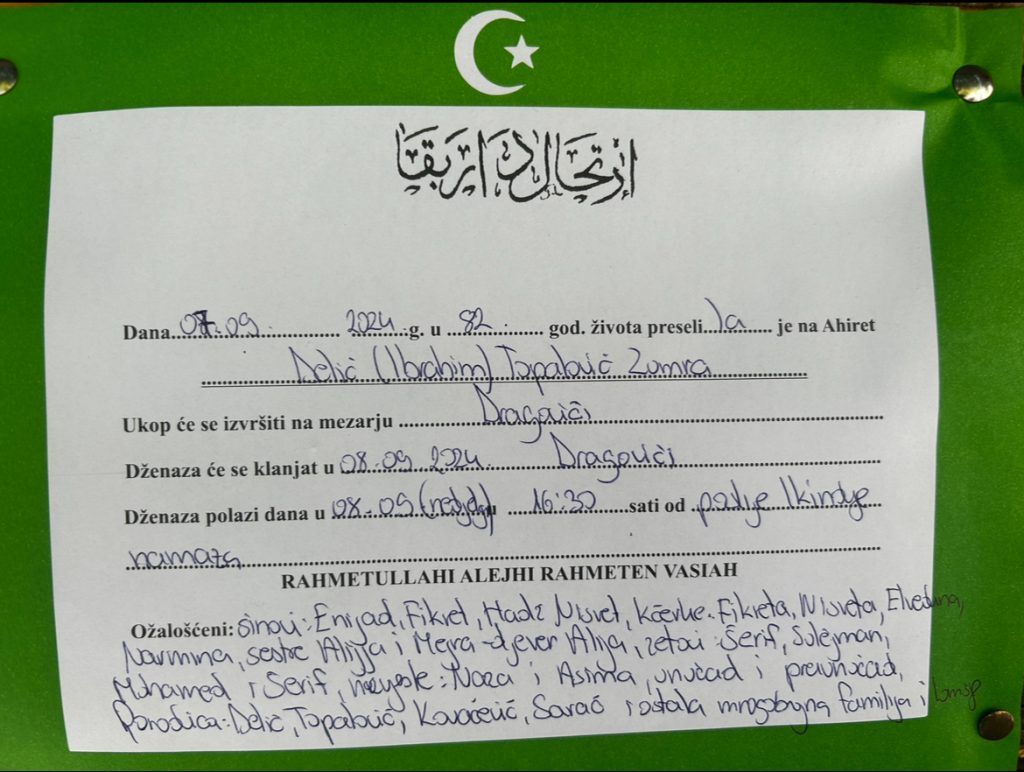 إرتحال دار بقا
Dana 07.09. 2024 .g. u 82. god. života preseli la je na Ahiret
Delić (Ibrahim) Topalović Zumra
Ukop će se izvršiti na mezarju Dragovići
Dženaza će se klanjat u 08.09. 2024. Dragovići
Dženaza polazi dana u 08.09 (nedjelju 16:30 sati od poslije Ikindije
namaza
RAHMETULLAHI ALEJHI RAHMETEN VASIAH
Ožalošćeni: Sinovi: Enijad, Fikret, Hadz Nisvet, kćerke: Fikreta, Nisveta, Elvedina,
Narmina, sestre Alija i Mejra - djever Alija, zetovi: Šerif, Sulejman,
Muhamed i Šerif, nevjeste: Naza i Asima, unučad i praunučad,
Porodica: Delić, Topalović, Kovačević, Sarač i ostala mnogobrojna familija i